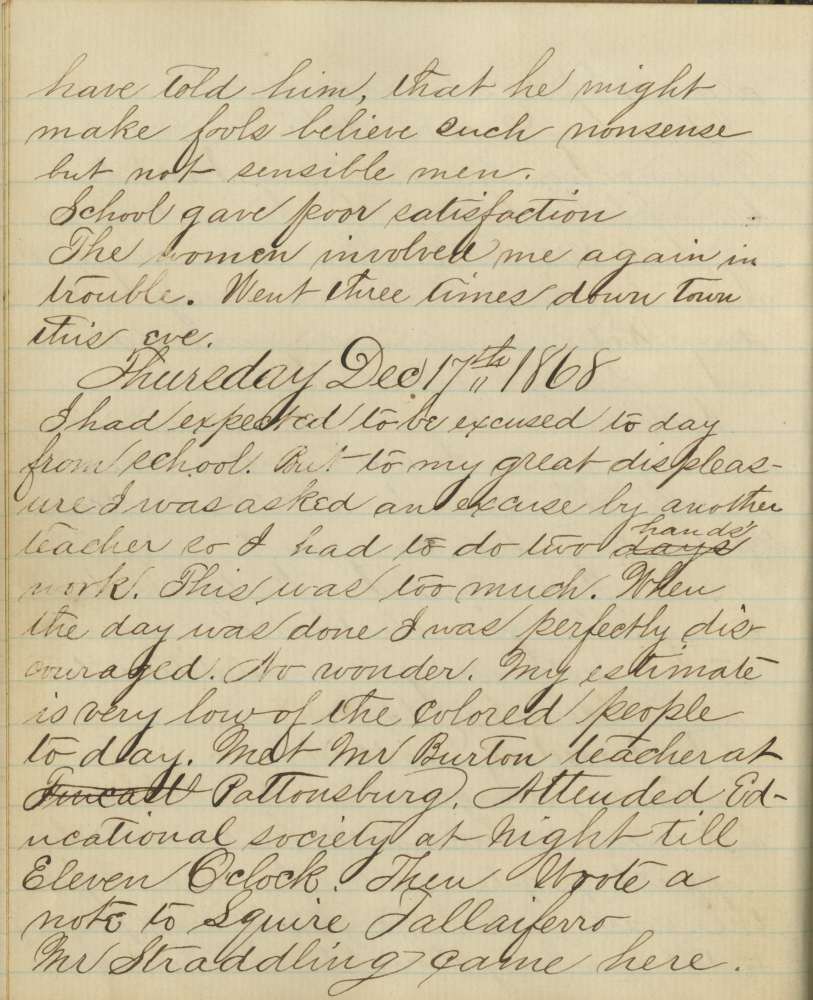 have told him, that he might
make fools believe such nonsense
but not sensible men.
School gave poor satisfaction
The women involved me again in
trouble. Went three times down town
this eve.
Thursday Dec 17th 1868
I had expected to be excused to day
from school. But to my great displeas-
ure I was asked an excuse by another
teacher so I had to do two days hands'
work. This was too much. When
the day was done I was perfectly dis-
couraged. No wonder. My estimate
is very low of the colored people
to day. Met Mr Burton teacher at
Fincastl Pattonsburg. Attended Ed-
ucational society at Night till
Eleven Oclock. Then Wrote a
note to Squire Tallaiferro
Mr Straddling came here.